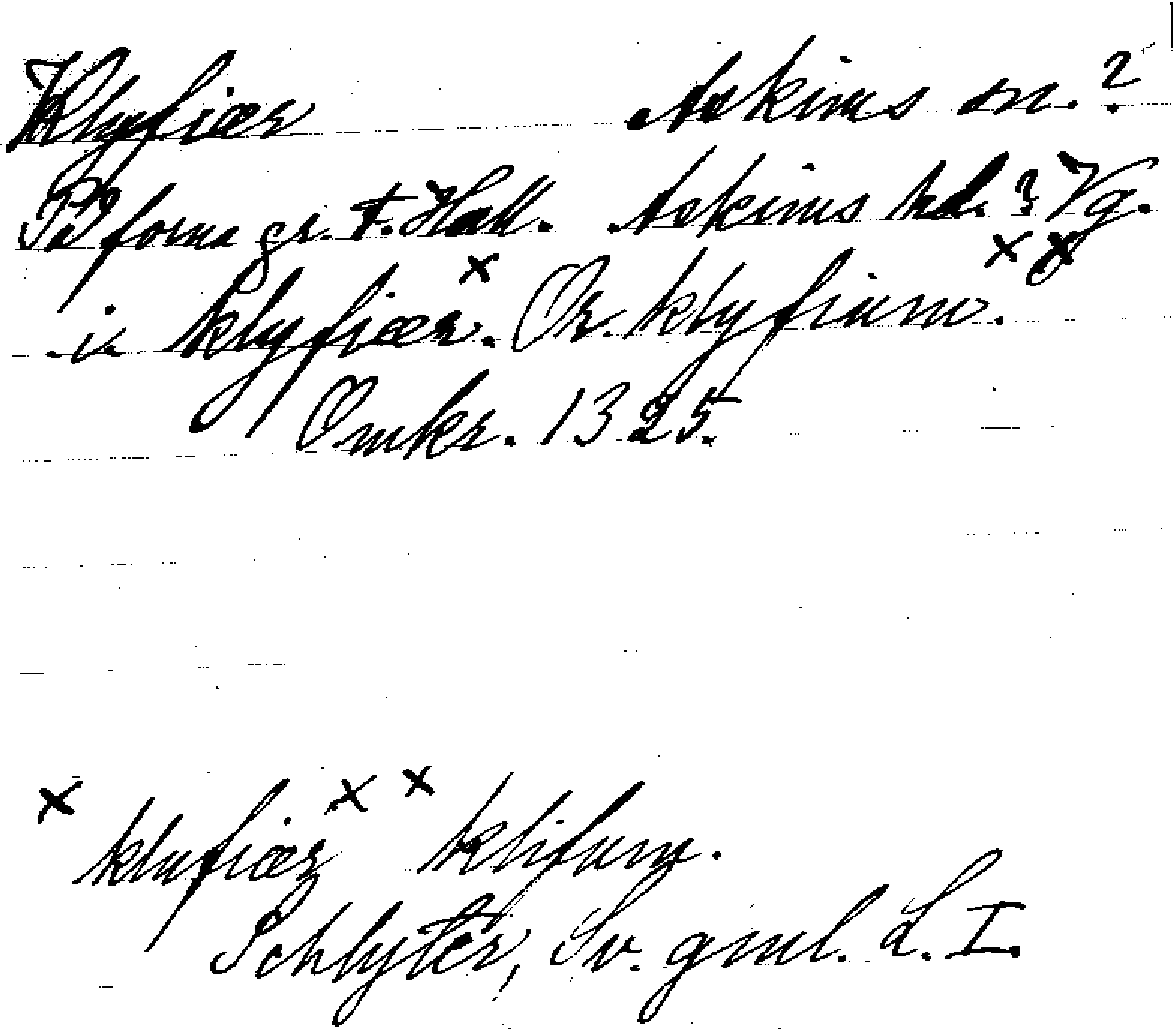 Klyfiær Askims sn.?
På forna gr. t. Hall. Askims hd.? Vg.
i klyfiær.× Or. klyfium.××
Omkr. 1325.
× klufiær ×× klifum.
Schlyter, Sv. gml. L. I.